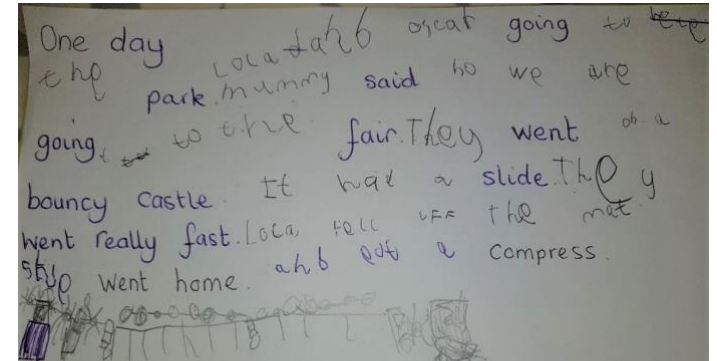 One day Loca and oscar going to
the park. mummy said no we are
going to the fair. They went on a
bouncy castle. It had a slide. They
went really fast. Loca fell off the mat.
and got a compress.
she went home.